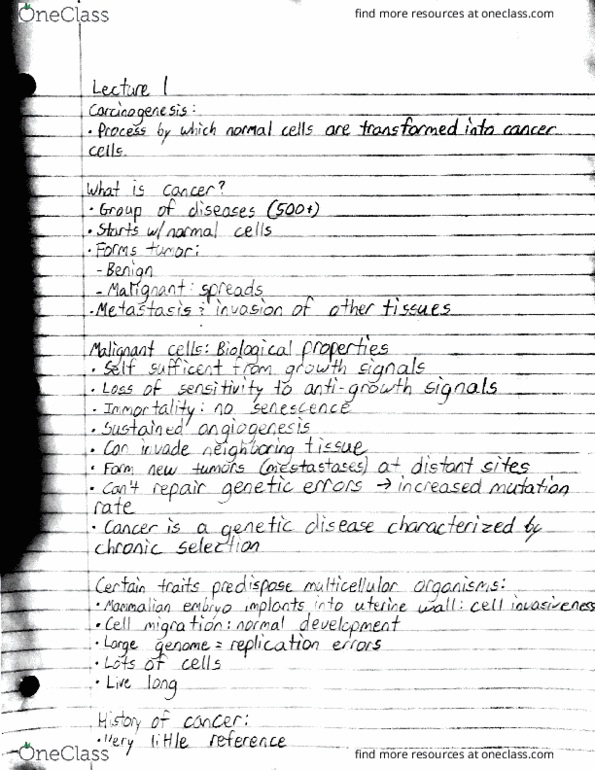 OneClass
find more resources at oneclass.com
Lecture 1
Carcinogenesis:
• Process by which normal cells are transformed into cancer
cells.
What is cancer?
• Group of diseases (500+)
• Starts w/ normal cells
• Forms tumor:
- Benign
- Malignant: spreads
• Metastasis: invasion of other tissues
Malignant cells: Biological properties
• Self sufficent from growth signals
• Loss of sensitivity to anti-growth signals
• Immortality: no senescence
• Sustained angiogenesis
• Can invade neighboring tissue
• Form new tumors (mestastases) at distant sites
• Can't repair genetic errors → increased mutation
rate
• Cancer is a genetic disease characterized by
chronic selection
Certain traits predispose multicellular organisms:
• Mammalian embryo implants into uterine wall: cell invasiveness
• Cell migration: normal development
• Large genome = replication errors
• Lots of cells
• Live long
History of cancer:
• Very little reference
OneClass
find more resources at oneclass.com